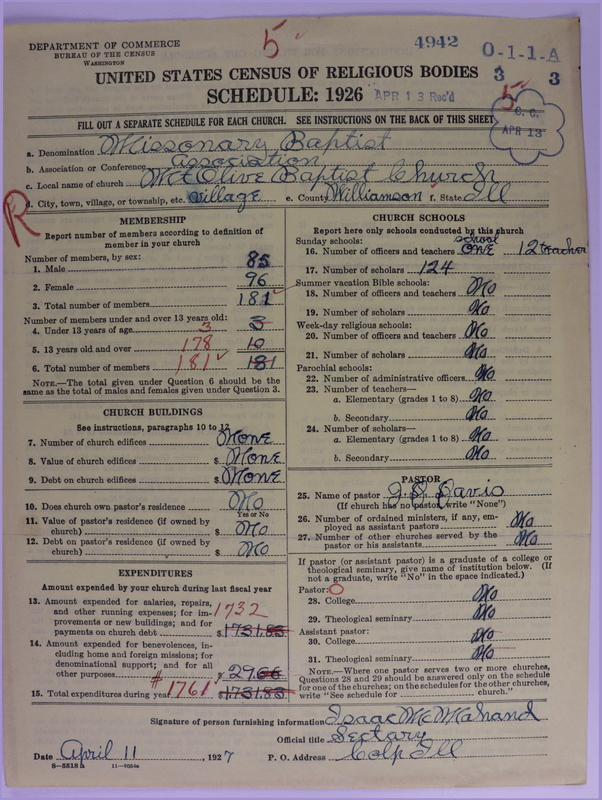 DEPARTMENT OF COMMERCE
BUREAU OF THE CENSUS
WASHINGTON
5
4942
O-1-1-A
3 3
UNITED STATES CENSUS OF RELIGIOUS BODIES
SCHEDULE: 1926
APR 13 Rec'd
5
C. C.
APR 13
FILL OUT A SEPARATE SCHEDULE FOR EACH CHURCH. SEE INSTRUCTIONS ON THE BACK OF THIS SHEET
a. Denomination Missonary Baptist
b. Association or Conference Association
c. Local name of church Mt Olive Baptist Church
d. City, town, village, or township, etc. village e. County Williamson f. State Ill
R
MEMBERSHIP
Report number of members according to definition of
member in your church
Number of members, by sex:
1. Male 85
2. Female 96
3. Total number of members 181
Number of members under and over 13 years old:
4. Under 13 years of age 3 3
5. 13 years old and over 178 10
6. Total number of members 181 181
NOTE.—The total given under Question 6 should be the
same as the total of males and females given under Question 3.
CHURCH BUILDINGS
See instructions, paragraphs 10 to 12
7. Number of church edifices None
8. Value of church edifices $ None
9. Debt on church edifices $ None
10. Does church own pastor's residence No
Yes or No
11. Value of pastor's residence (if owned by
church) $ No
12. Debt on pastor's residence (if owned by
church) $ No
EXPENDITURES
Amount expended by your church during last fiscal year
13. Amount expended for salaries, repairs,
and other running expenses; for im-
provements or new buildings; and for
payments on church debt 1732 $ 1731.83
14. Amount expended for benevolences, in-
cluding home and foreign missions; for
denominational support; and for all
other purposes $ 29.66
15. Total expenditures during year $1761 $ 1731.83
CHURCH SCHOOLS
Report here only schools conducted by this church
Sunday schools:
16. Number of officers and teachers school ONE 12 teacher
17. Number of scholars 124
Summer vacation Bible schools:
18. Number of officers and teachers No
19. Number of scholars No
Week-day religious schools:
20. Number of officers and teachers No
21. Number of scholars No
Parochial schools:
22. Number of administrative officers No
23. Number of teachers—
a. Elementary (grades 1 to 8) No
b. Secondary No
24. Number of scholars—
a. Elementary (grades 1 to 8) No
b. Secondary No
PASTOR
25. Name of pastor Davis
(If church has no pastor, write "None")
26. Number of ordained ministers, if any, em-
ployed as assistant pastors No
27. Number of other churches served by the
pastor or his assistants No
If pastor (or assistant pastor) is a graduate of a college or
theological seminary, give name of institution below. (If
not a graduate, write "No" in the space indicated.)
Pastor:
28. College No
29. Theological seminary No
Assistant pastor:
30. College No
31. Theological seminary No
NOTE.—Where one pastor serves two or more churches,
Questions 28 and 29 should be answered only on the schedule
for one of the churches; on the schedules for the other churches,
write "See schedule for church."
Signature of person furnishing information Isaac McMahand
Official title Sectary
Date April 11, 1927 P. O. Address Colp Ill
8-5518a 11-9054a